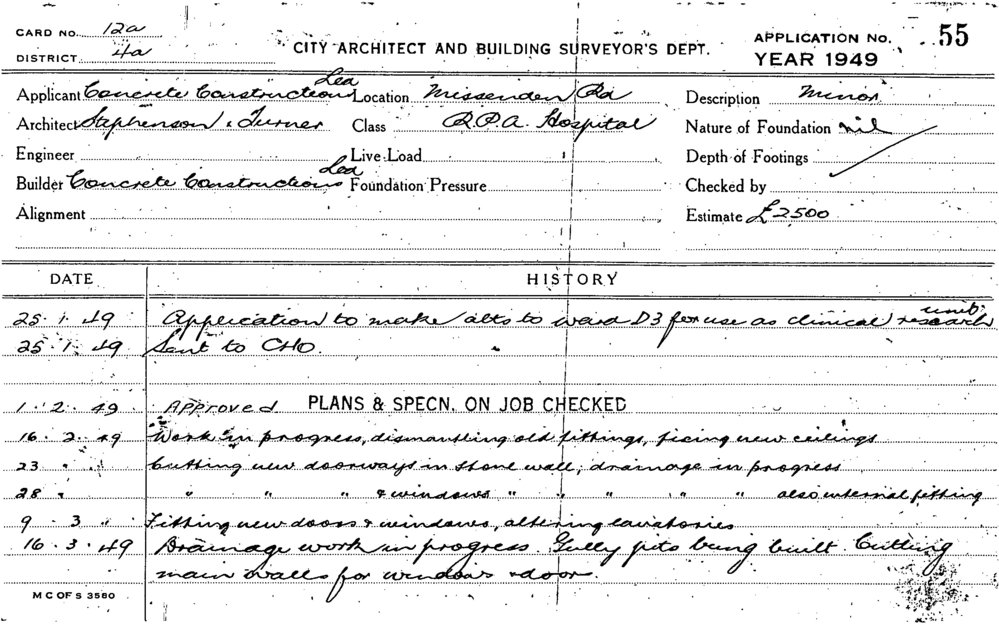 CARD NO. 12a
DISTRICT 4a
CITY ARCHITECT AND BUILDING SURVEYOR'S DEPT.
APPLICATION NO. 55
YEAR 1949
Applicant Concrete Constructions Location Missenden Rd Description Minor
Architect Stephenson & Turner Class R.P.A. Hospital Nature of Foundation nil
Engineer Live Load Depth of Footings
Builder Concrete Constructions Foundation Pressure Checked by
Alignment Estimate £2500
DATE HISTORY
25.1.49 Application to make alts to ward D3 for use as clinical research unit.
25.1.49 Sent to CHO.
1.2.49 Approved PLANS & SPECN. ON JOB CHECKED
16.2.49 Work in progress, dismantling old fittings, fixing new ceilings
23 " Cutting new doorways in stone wall; drainage in progress
28 " " " " & windows " " " " " also internal fitting
9.3 " Fitting new doors & windows, altering lavatories
16.3.49 Drainage work in progress. Gully pits being built. Cutting
main walls for windows & door.
M C OF S 3580